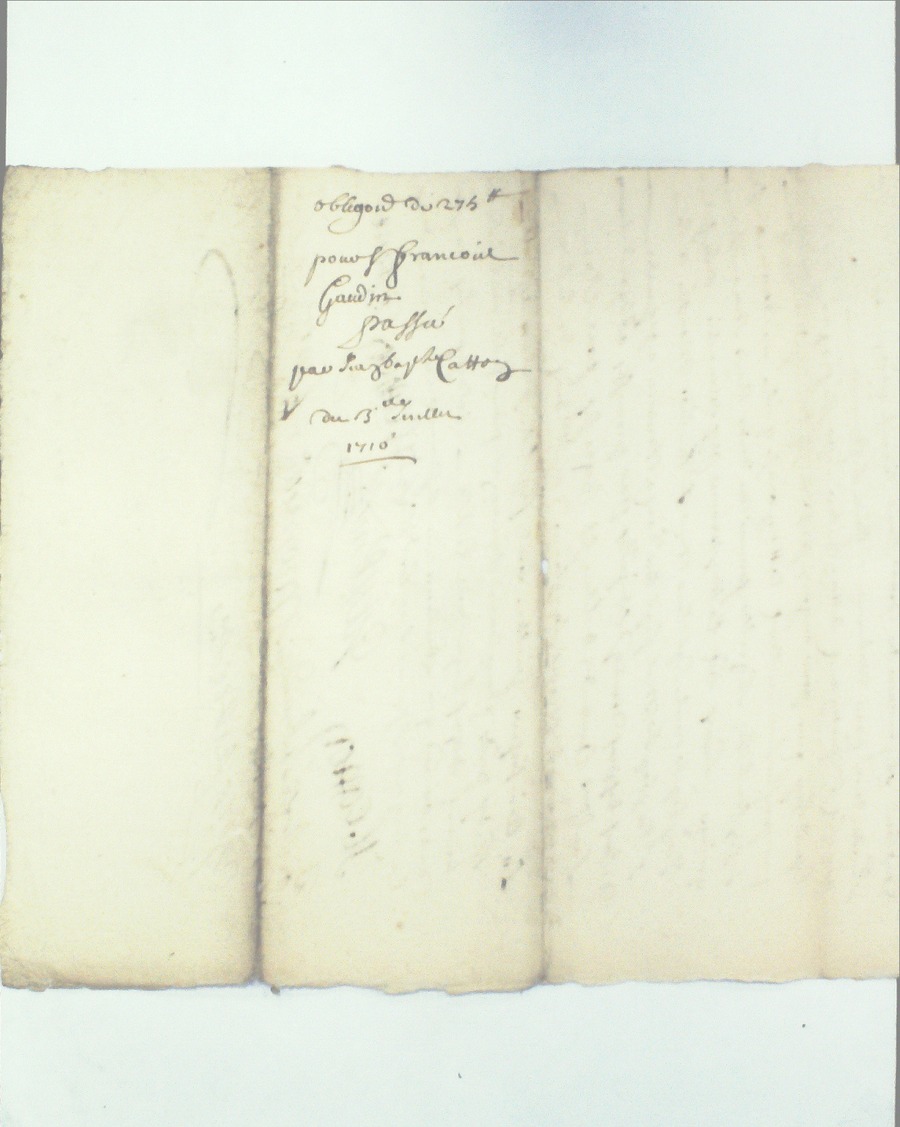 obligaōn de 275ᵗᵗ
pour Sʳ francois
Gaudin
passée
par Jean bapte Catto
du 3 Juillet
1710